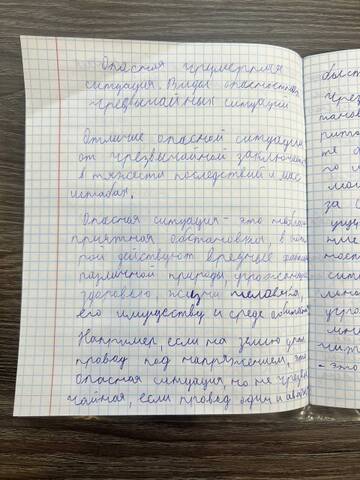 Опасная чрезмерная
ситуация. Виды опасностей
чрезвычайных ситуаций
Отличие опасной ситуации
от чрезвычайной заключает
в тяжести последствий и мас
штабах.
Опасная ситуация - это неблаго
приятная обстановка, в кото
рой действуют вредные факторы
различной природы, угрожающие
здоровью жизни человека,
его имуществу и среде обитания
Например, если на землю упал
провод под напряжением, это
опасная ситуация, но не чрезвы
чайная, если провод один и авария
быст
чрез
танов
рит
те а
по и
мож
за с
ущ
ние
ност
сит
льно
угро
льно
чит
- это